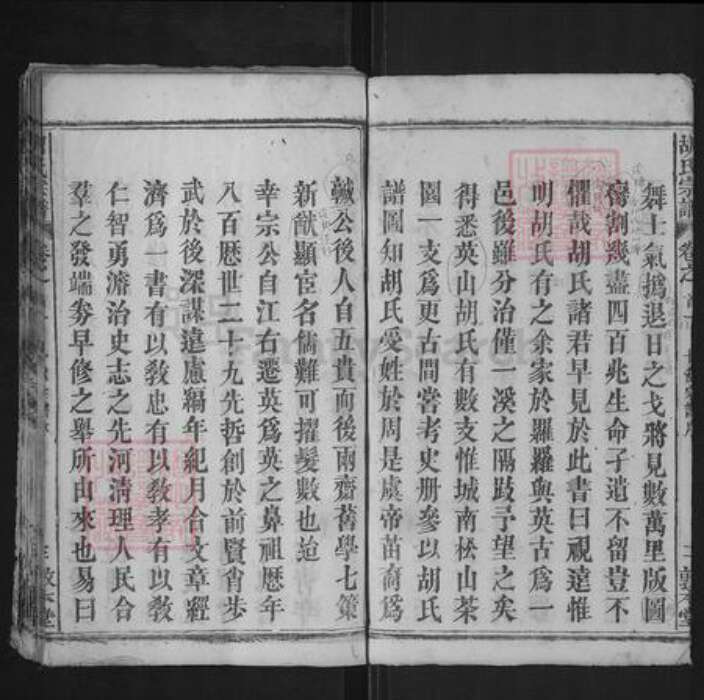 胡氏宗譜 卷之首
敦本堂
舞士氣撝退日之戈將見數萬里版圖
臠割幾盡四百兆生命孑遺不留豈不
懼哉胡氏諸君早見於此書曰視遠惟
明胡氏有之余家於羅羅與英古爲一
邑後雖分治僅一溪之隔跂予望之矣
得悉英山胡氏有數支惟城南松山茶
園一支爲更古間嘗考史册參以胡氏
譜圖知胡氏受姓於周是虞帝苗裔爲
誠公後人自五貴而後兩齋舊學七策
新猷顯宦名儒難可擢髮數也迨
幸宗公自江右遷英爲英之鼻祖歷年
八百歷世二十九先哲創於前賢肯步
武於後深謀遠慮編年紀月合文章經
濟爲一書有以教忠有以教孝有以教
仁智勇濬治史志之先河清理人民合
羣之發端劵早修之舉所由來也易曰
卷之
三 敦本堂